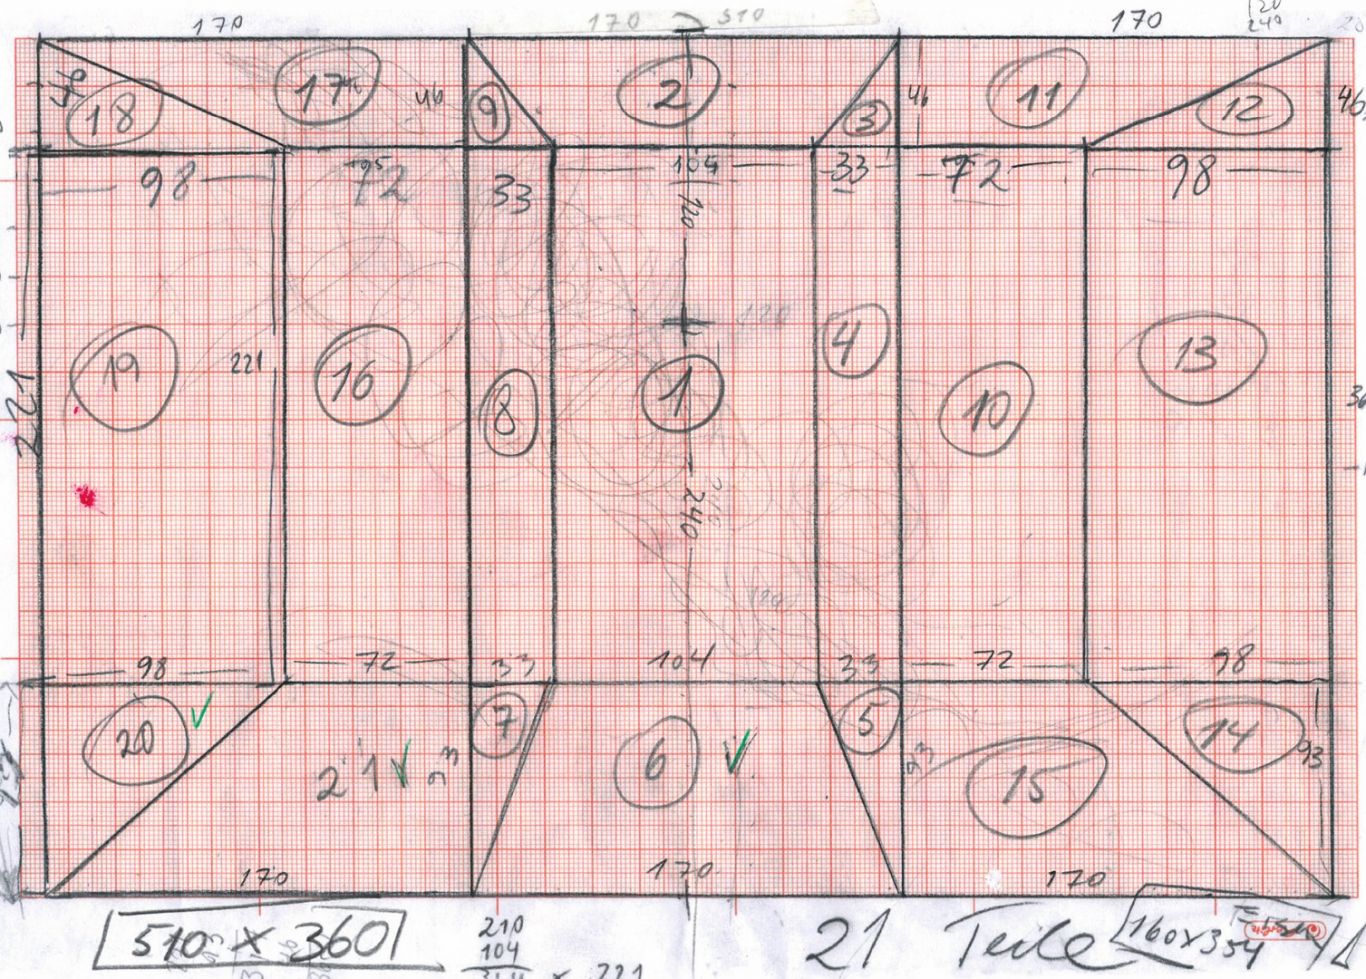 170 170 510 170 120
240
46 18 17 46 9 2 3 46 11 12 46
98 72 33 104 33 72 98
120
120
19 221 16 8 1 4 10 13
221
240
98 72 33 104 33 72 98
20 21 93 7 6 5 93 15 14 93
170 170 170
510 x 360 210 21 Teile 160x354
104
221